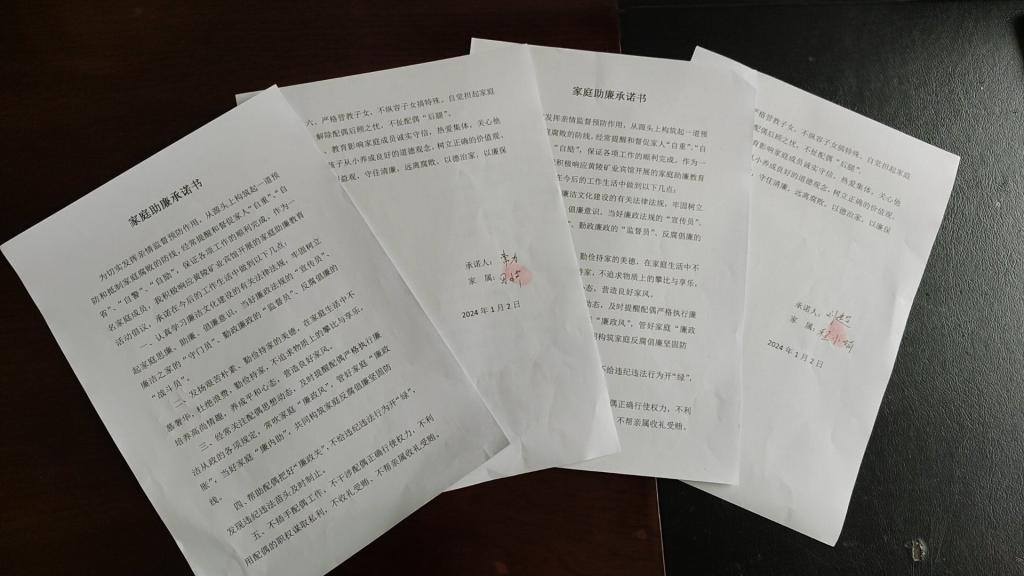 家庭助廉承诺书
为切实发挥亲情监督预防作用，从源头上构筑起一道预
防和抵制家庭腐败的防线，经常提醒和督促家人“自重”、“自
省”、“自警”、“自励”，保证各项工作的顺利完成。作为一
名家庭成员，我积极响应黄陵矿业宾馆开展的家庭助廉教育
活动倡议，承诺在今后的工作生活中做到以下几点：
一、认真学习廉洁文化建设的有关法律法规，牢固树立
起家庭思廉、助廉、倡廉意识。当好政法规的“宣传员”、
廉洁之家的“守门员”、勤政廉政的“监督员”、反腐倡廉的
“战斗员”。
二、发扬艰苦朴素、勤俭持家的美德，在家庭生活中不
慕奢华，杜绝浪费，勤俭持家，不追求物质上的攀比与享乐，
培养高尚情趣，养成平和心态，营造良好家风。
三、经常关注配偶思想动态，及时提醒配偶严格执行廉
洁从政的各项规定，常吹家庭“廉政风”，管好家庭“廉政
账”，当好家庭“廉内助”，共同构筑家庭反腐倡廉坚固防
线。
四、帮助配偶把好“廉政关”，不给违纪违法行为开“绿”，
发现违纪违法苗头及时制止。
五、不插手配偶工作，不干涉配偶正确行使权力，不利
用配偶的职权谋取私利，不收礼受贿，不帮亲属收礼受贿。
六、严格管教子女，不纵容子女搞特殊，自觉担起家庭
解除配偶后顾之忧，不扯配偶“后腿”。
教育影响家庭成员诚实守信，热爱集体，关心他
孩子从小养成良好的道德观念，树立正确的价值观、
益观，守住清廉，远离腐败，以德治家，以廉保
承诺人：
家 属：
2024年1月2日
家庭助廉承诺书
发挥亲情监督预防作用，从源头上构筑起一道预
家庭腐败的防线，经常提醒和督促家人“自重”、“自
“自励”，保证各项工作的顺利完成。作为一
积极响应黄陵矿业宾馆开展的家庭助廉教育
在今后的工作生活中做到以下几点：
廉洁文化建设的有关法律法规，牢固树立
倡廉意识。当好政法规的“宣传员”、
、勤政廉政的“监督员”、反腐倡廉的
勤俭持家的美德，在家庭生活中不
持家，不追求物质上的攀比与享乐，
态，营造良好家风。
动态，及时提醒配偶严格执行廉
“廉政风”，管好家庭“廉政
构筑家庭反腐倡廉坚固防
不给违纪违法行为开“绿”，
偶正确行使权力，不利
不帮亲属收礼受贿。
管教子女，不纵容子女搞特殊，自觉担起家庭
偶后顾之忧，不扯配偶“后腿”。
育影响家庭成员诚实守信，热爱集体，关心他
小养成良好的道德观念，树立正确的价值观、
守住清廉，远离腐败，以德治家，以廉保
承诺人：
家 属：
2024年1月2日